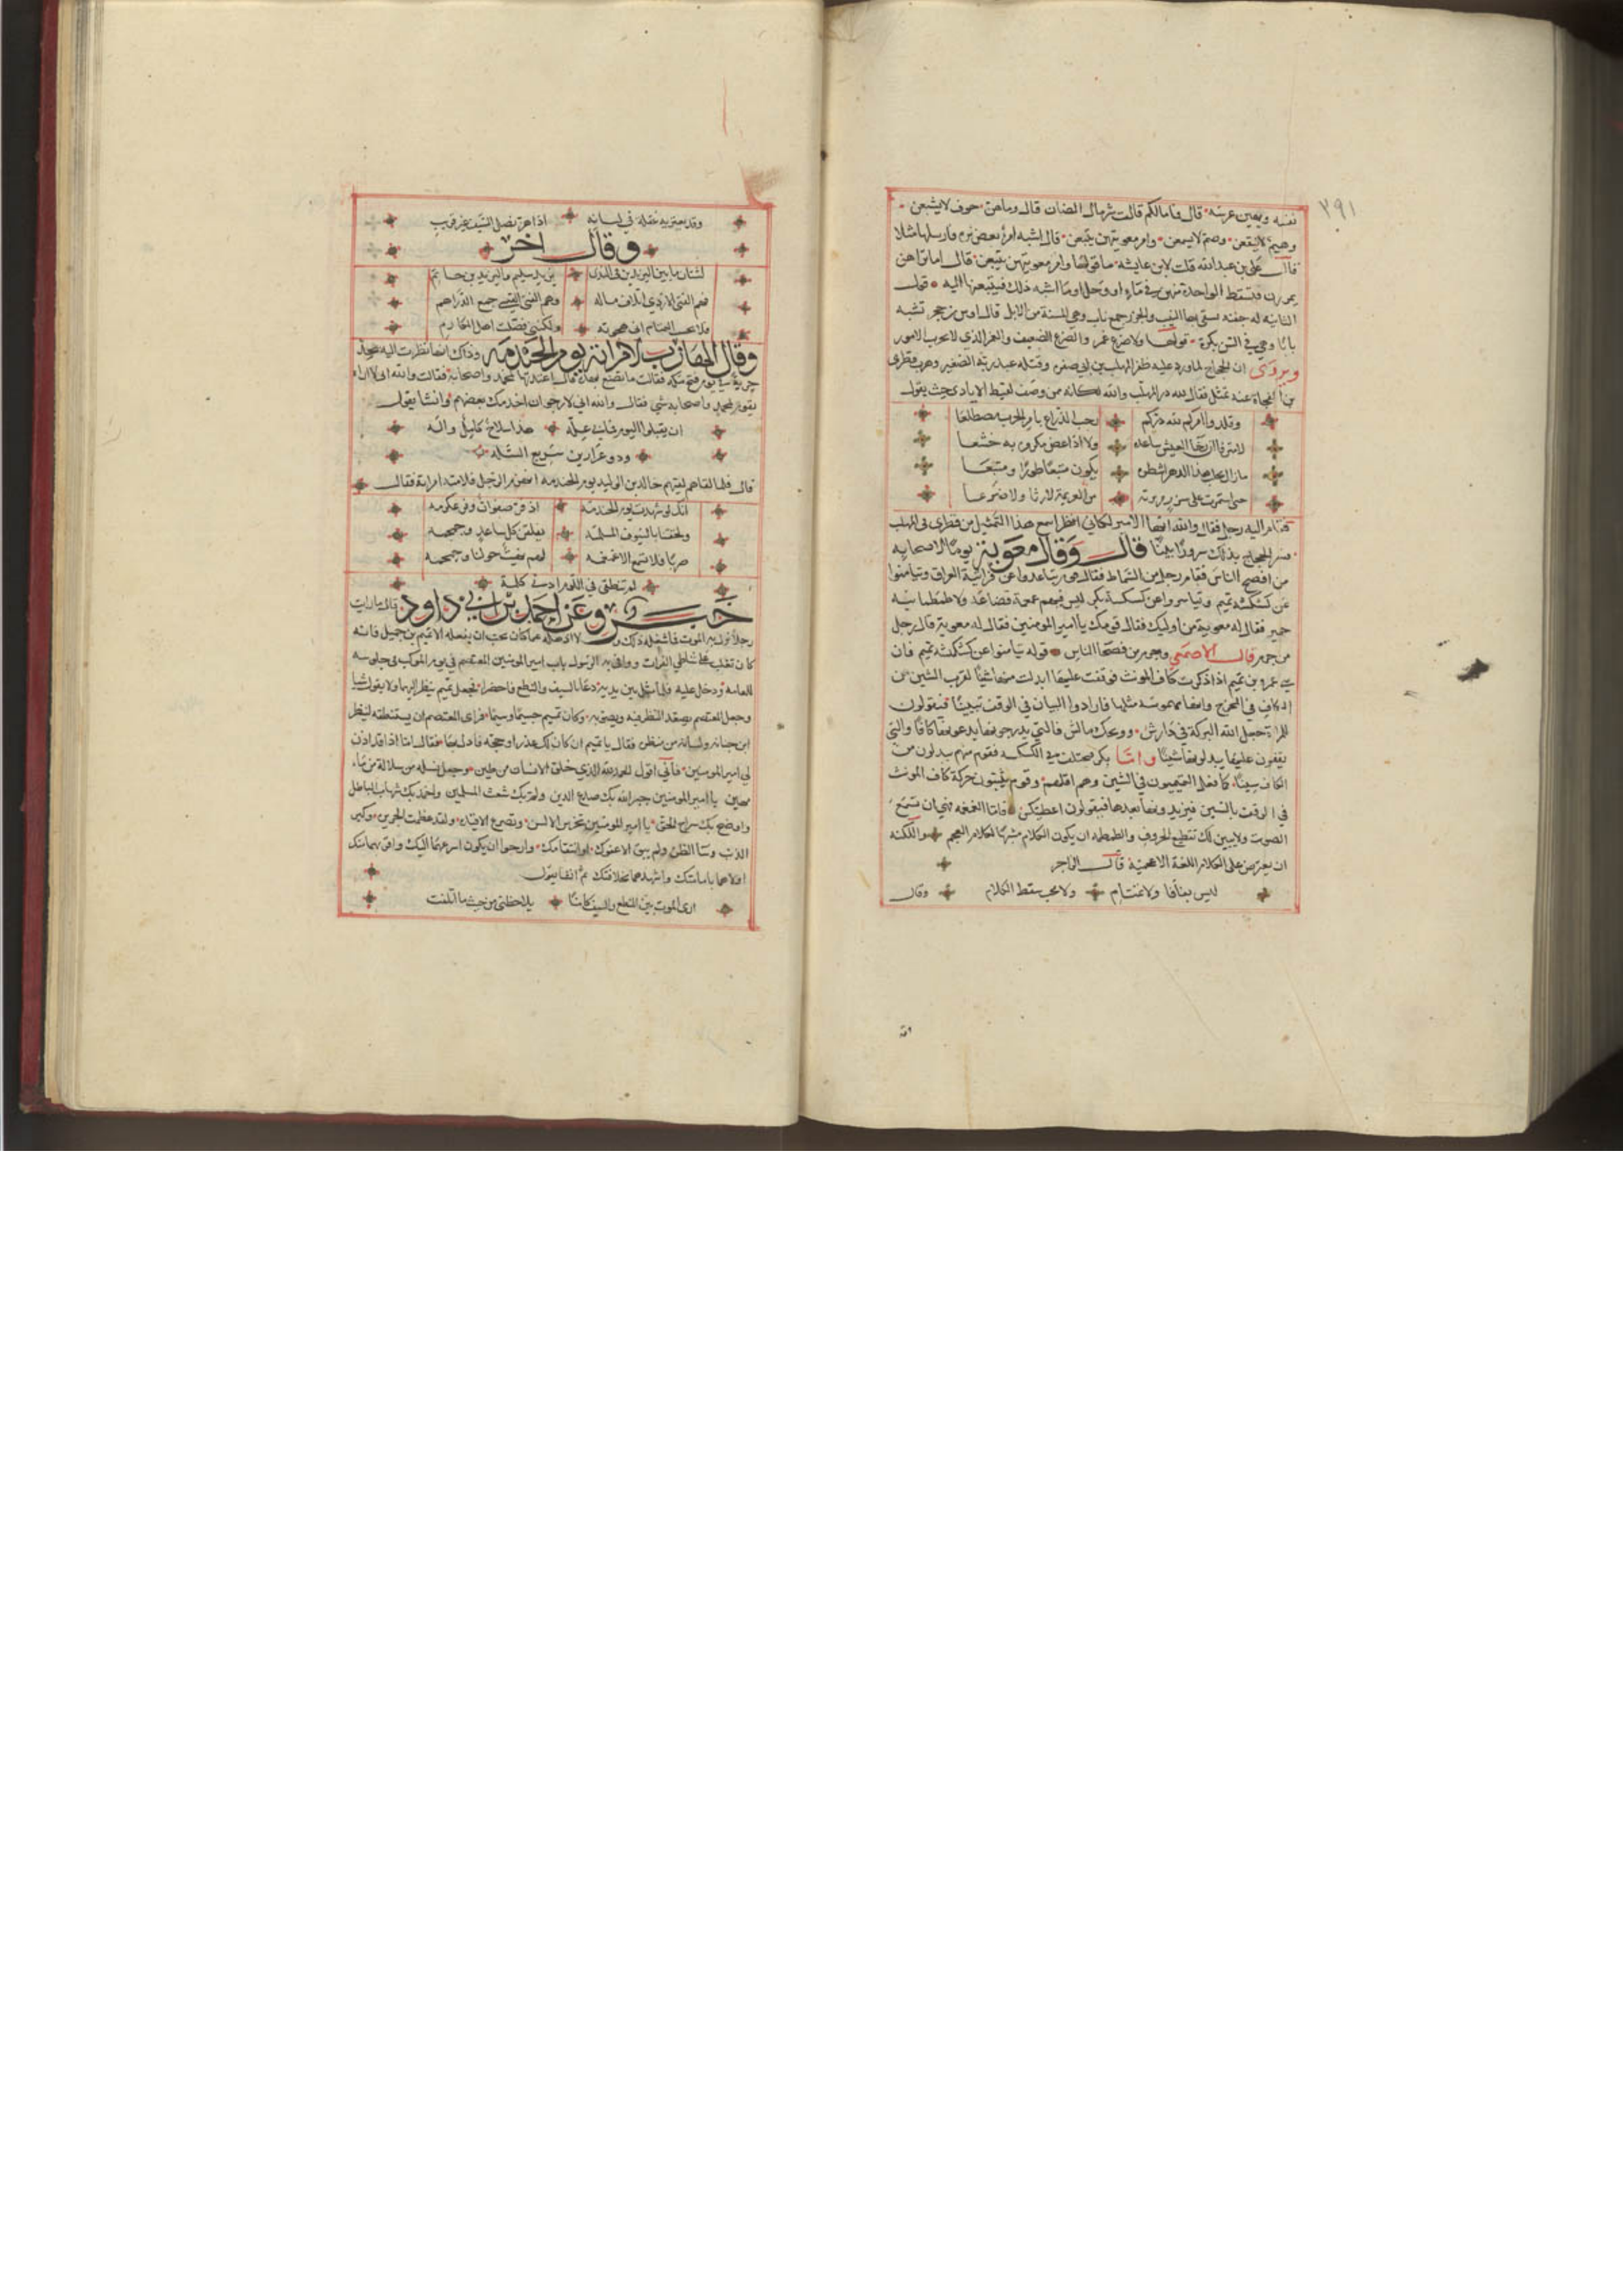 ٣٩١
نفسه ويعين عرسه قال فما مالكم قالت شر مال الضان قال وما هن جوف لا يشبعن
وهيم لا ينقعن وصم لا يسمعن وامر مغويتهن يتبعن قال اشبه امرا بعض بزه فارسلها مثلا
قال علي بن عبد الله قلت لابن عايشة ما قولها وامر مغويتهن يتبعن قال اما تراهن
يمررن فتسقط الواحدة منهن في ماء او وحل او ما اشبه ذلك فيتبعنها اليه
ويروى ان الحجاج لما ورد عليه ظفر المهلب بن ابي صفره وقتله عبد ربه الصغير وهرب قطري
وقلدوا امركم لله دركم رحب الذراع بامر الحرب مضطلعا
لا مترفا ان رخا العيش ساعده ولا اذا عض مكروه به خشعا
يكون متبعا طورا ومتبعا
فقام اليه رجل فقال والله ايها الامير لكاني انظر اسمع هذا التمثيل من قطري في المهلب
فسر الحجاج بذلك سرورا بينا قال وقال معوية يوما لاصحابه
من افصح الناس فقام رجل من السماط فقال قوم تباعدوا عن فراتية العراق وتيامنوا
عن كشكشة تميم وتياسروا عن كسكسة بكر ليس فيهم غمغمة قضاعة ولا طمطمانية
حمير فقال له معوية من اوليك فقال قومك يا امير المومنين فقال له معوية قال رجل
من جرم قال الاصمعي وجرم من فصحا الناس قوله تيامنوا عن كشكشة تميم فان
بني عمرو بن تميم اذا ذكرت كاف المونث فوقفت عليها ابدلت منها شينا لقرب الشين من
الكاف في المخرج وانها مهموسة مثلها فارادوا البيان في الوقف فيقولون
للمراة جعل الله البركة في دارش وويحك مالش فالتي يدرجونها يدعونها كافا والتي
يقفون عليها يبدلونها شينا واما بكر فتختلف في الكسكسة فقوم منهم يبدلون من
الكاف سينا كما فعل التميميون في الشين وهم اقلهم وقوم يثبتون حركة كاف المونث
في الوقف بالسين فيزيدونها بعدها فيقولون اعطيتكس فاما الغمغمة فهي ان تسمع
الصوت ولا يبين لك تقطيع الحروف والطمطمة ان يكون الكلام مشبها لكلام العجم واللكنة
ان يعترض على الكلام اللغة الاعجمية قال الراجز
ليس بفافا ولا تمتام ولا محب سقط الكلام وقال
وقد يعتريه عقلة في لسانه اذا هز نصل السيف غير قريب
وقال اخر
لشتان ما بين اليزيدين في الندى يزيد سليم واليزيد بن حاتم
فهم الفتى الازدي اتلاف ماله وهم الفتى القيسي جمع الدراهم
فلا يحسب التمتام اني هجوته ولكنني فضلت اهل المكارم
وقال الهارب لامراته يوم الخندمة وذاك انها نظرت اليه يحد
حربة في يوم فتح مكة فقالت ما تصنع بهذه قال اعددتها لمحمد واصحابه فقالت والله اني لا اراه
يقوم لمحمد واصحابه شي فقال والله اني لارجو ان اخدمك بعضهم وانشا يقول
ان يقبلوا اليوم فما لي عله هذا سلاح كامل واله
وذو غرارين سريع السله
قال فلما لقاهم خالد بن الوليد يوم الخندمة انهزم الرجل فلامته امراته فقال
انك لو شهدت يوم الخندمه اذ فر صفوان وفر عكرمه
ولحقتنا بالسيوف المسلمه يفلقن كل ساعد وجمجمه
ضربا فلا تسمع الا غمغمه لهم نهيت حولنا وجمجمه
لم تنطقي في اللوم ادنى كلمة
خبر وعن احمد بن ابي داود قال ما رايت
رجلا نزل به الموت فما شغله ذلك ولا اذهله عما كان يحب ان يفعله الا تميم بن جميل فانه
كان تغلب على شاطي الفرات ووافى به الرسول باب امير المومنين المعتصم في يوم الموكب في جلوسه
للعامة ودخل عليه فلما مثل بين يديه دعا بالسيف والنطع فاحضرا فجعل تميم ينظر اليهما ولا يقول شيا
وجعل المعتصم يصعد النظر فيه ويصوبه وكان تميم جسيما وسيما فراى المعتصم ان يستنطقه لينظر
اين جنانه ولسانه من منظره فقال يا تميم ان كان لك عذر او حجة فادل بها فقال اما اذ قد اذن
لي امير المومنين فاني اقول الحمد لله الذي خلق الانسان من طين وجعل نسله من سلالة من ماء
مهين يا امير المومنين جبر الله بك صدع الدين ولم بك شعث المسلمين واخمد بك شهاب الباطل
واوضح بك سراج الحق يا امير المومنين تخرس الالسن وتصدع الافئدة ولقد عظمت الجريره وكبر
الذنب وسا الظن ولم يبق الا عفوك او انتقامك وارجو ان يكون اسرعهما اليك
اولاهما بامامتك واشبههما بخلافتك ثم انشا يقول
ارى الموت بين النطع والسيف كامنا يلاحظني من حيث ما اتلفت